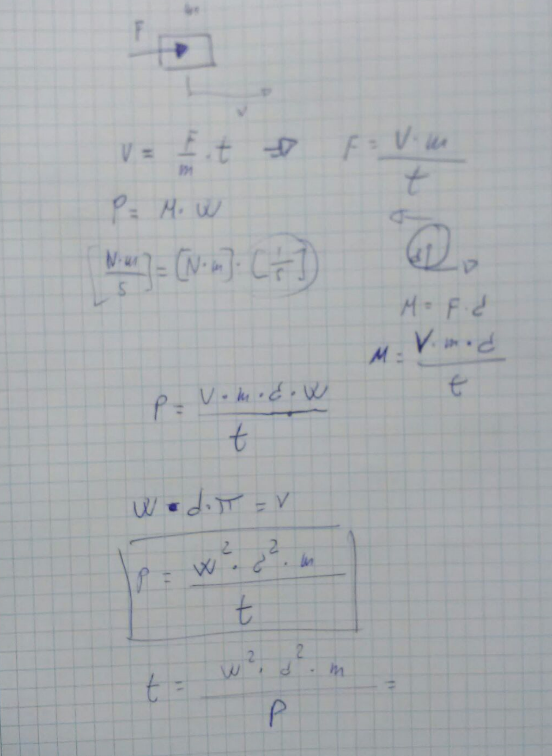 m
F
V
V = F/m · t ⇒ F = V · m / t
P = M · W
[N·m / s] = [N·m] · [1/s]
d
M = F · d
M = V · m · d / t
P = V · m · d · W / t
W · d · π = V
P = W² · d² · m / t
t = W² · d² · m / P =